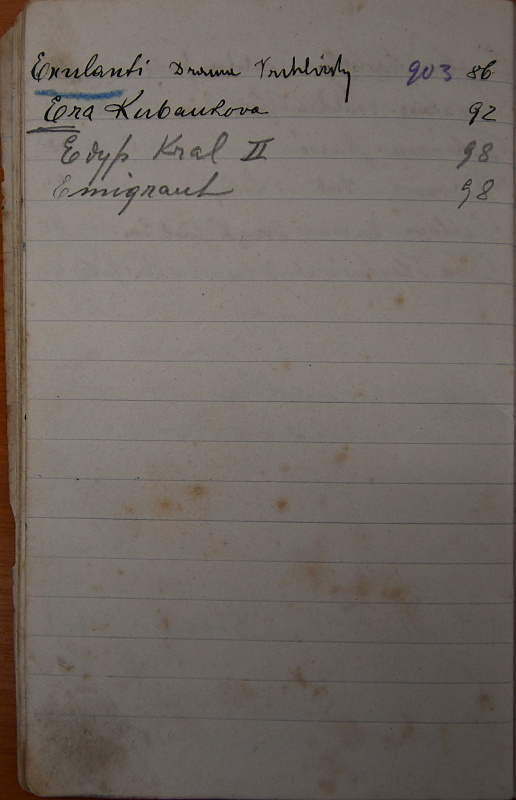 Exulanti Drama Vrchlický 903 86
Era Kubankova 92
Edyp Kral II 98
Emigrant 98